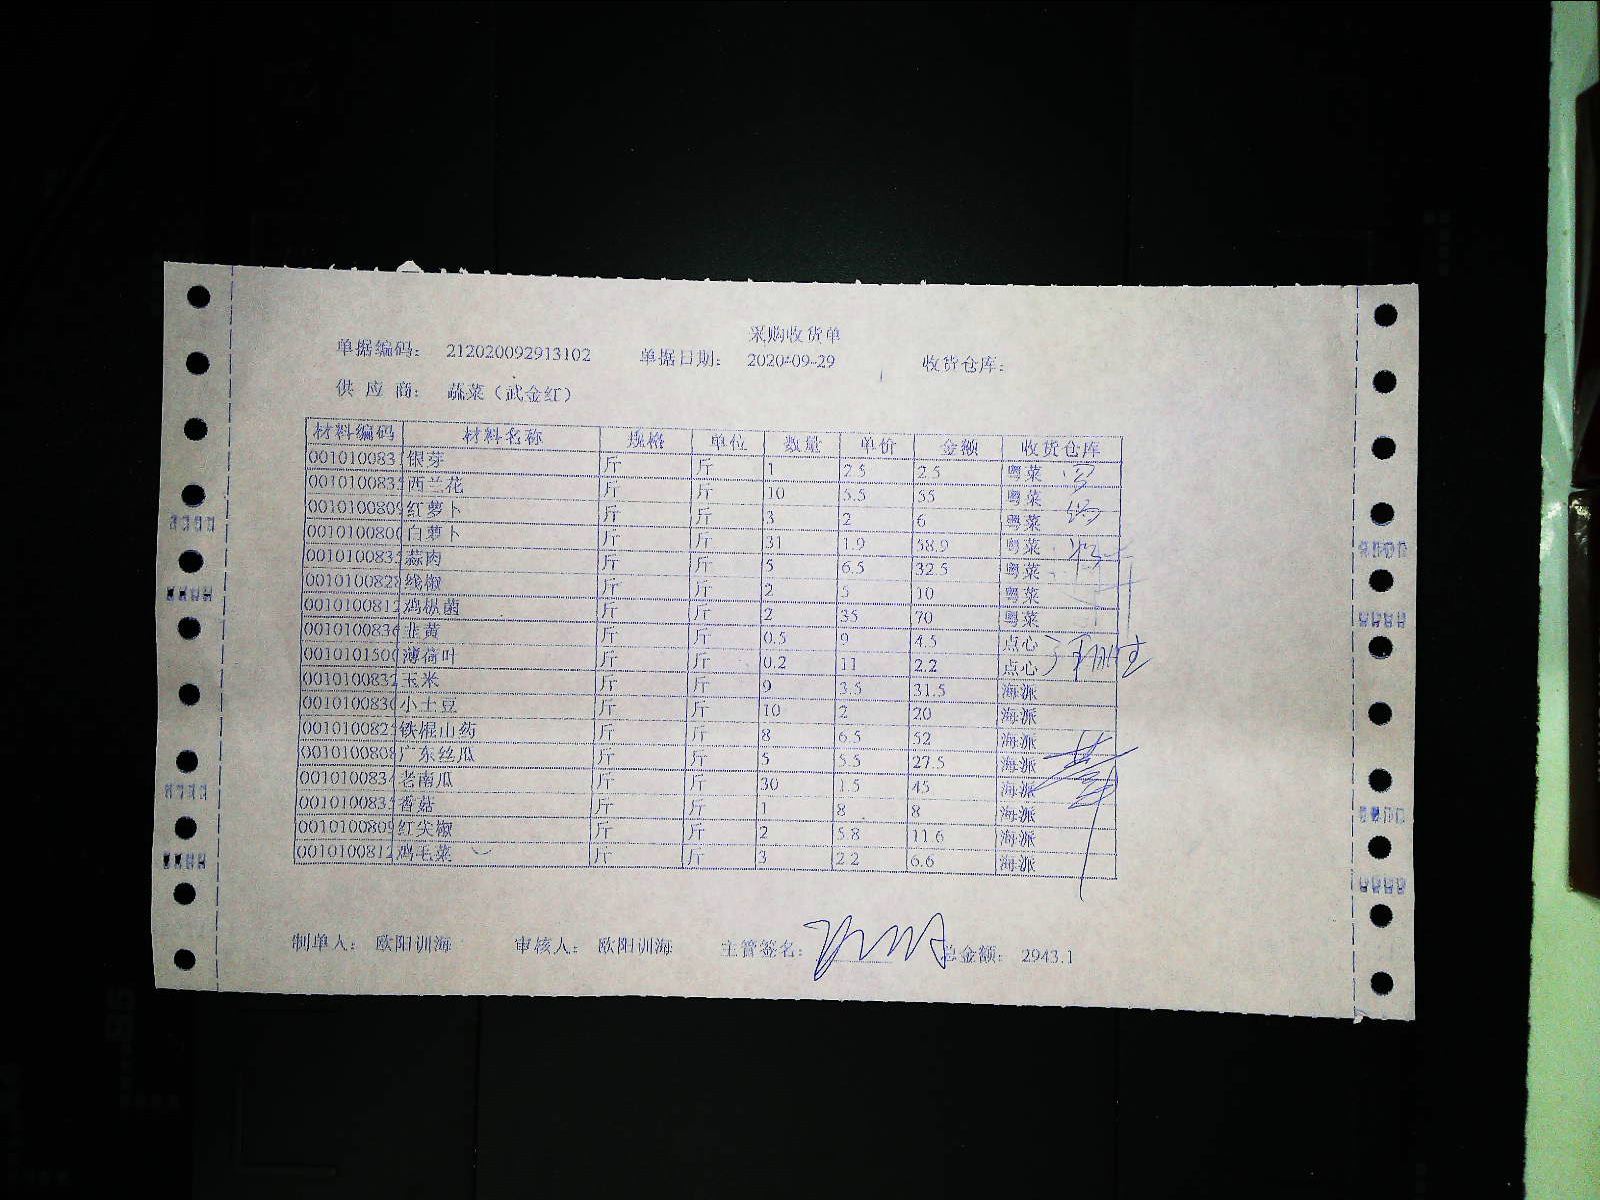 采购收货单
单据编码： 212020092913102 单据日期： 2020-09-29 收货仓库：
供 应 商： 蔬菜（武金红）
材料编码 材料名称 规格 单位 数量 单价 金额 收货仓库
001010083 银芽 斤 斤 1 2.5 2.5 粤菜
001010083 西兰花 斤 斤 10 5.5 55 粤菜
001010080 红萝卜 斤 斤 3 2 6 粤菜
001010080 白萝卜 斤 斤 31 1.9 58.9 粤菜
001010083 蒜肉 斤 斤 5 6.5 32.5 粤菜
001010082 线椒 斤 斤 2 5 10 粤菜
001010081 鸡枞菌 斤 斤 2 35 70 粤菜
001010083 韭黄 斤 斤 0.5 9 4.5 点心
001010150 薄荷叶 斤 斤 0.2 11 2.2 点心
001010083 玉米 斤 斤 9 3.5 31.5 海派
001010083 小土豆 斤 斤 10 2 20 海派
001010082 铁棍山药 斤 斤 8 6.5 52 海派
001010080 广东丝瓜 斤 斤 5 5.5 27.5 海派
001010083 老南瓜 斤 斤 30 1.5 45 海派
001010083 香菇 斤 斤 1 8 8 海派
001010080 红尖椒 斤 斤 2 5.8 11.6 海派
001010081 鸡毛菜 斤 斤 3 2.2 6.6 海派
制单人： 欧阳训海 审核人： 欧阳训海 主管签名： 总金额： 2943.1